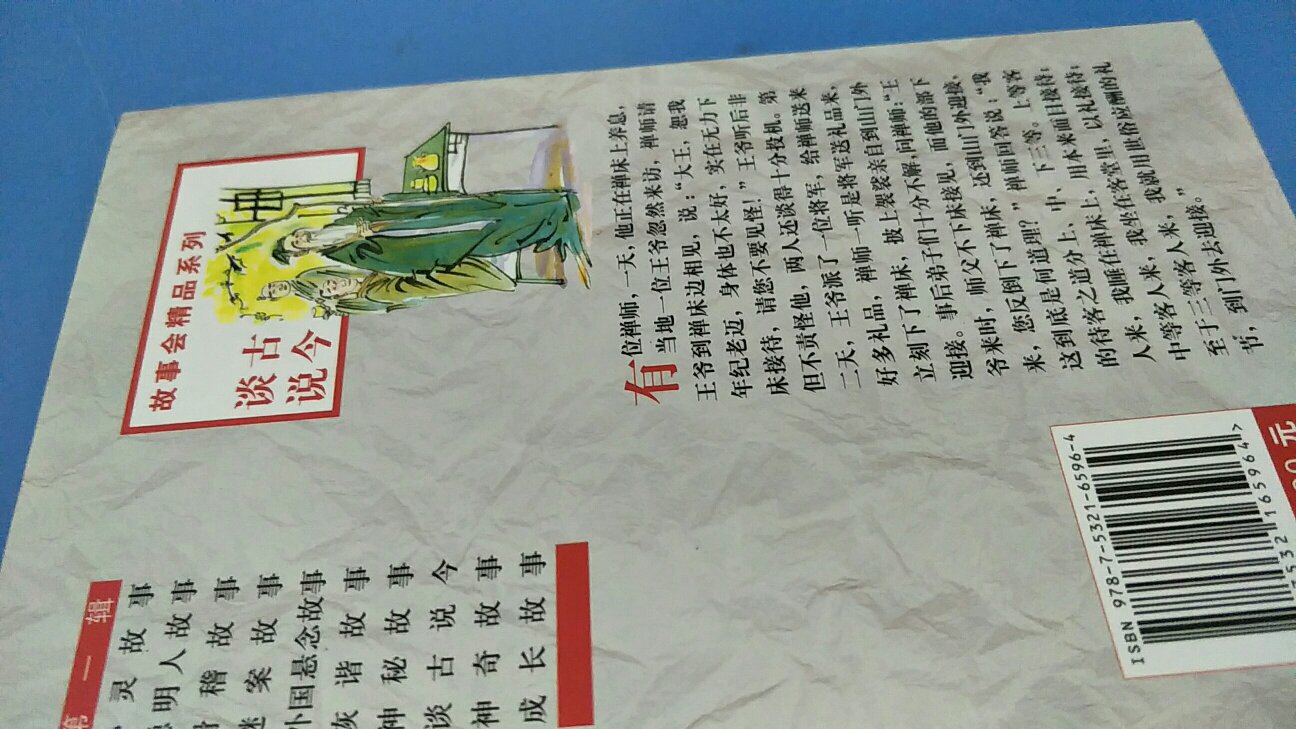 故事会精品系列
谈古
说今
有位禅师，一天，他正在禅床上养息，
当地一位王爷忽然来访，禅师请
王爷到禅床边相见，说：“大王，恕我
年纪老迈，身体也不太好，实在无力下
床接待，请您不要见怪！”王爷听后非
但不责怪他，两人还谈得十分投机。第
二天，王爷派了一位将军，给禅师送来
好多礼品，禅师一听是将军送礼品来，
立刻下了禅床，披上袈裟亲自到山门外
迎接。事后弟子们十分不解，问禅师：“王
爷来时，师父不下床接见，而他的部下
来，您反倒下了禅床，还到山门外迎接，
这到底是何道理？”禅师回答说：“我
的待客之道分上、中、下三等。上等客
人来，我睡在禅床上，用本来面目接待；
中等客人来，我坐在客堂里，以礼接待；
至于三等客人来，我就用世俗应酬的礼
节，到门外去迎接。”
第一辑
灵故事
明人故事
稽故事
案故事
外国悬念故事
诙谐故事
神秘故事
谈古说今
神奇故事
成长故事
ISBN 978-7-5321-6596-4
532 165964>
元